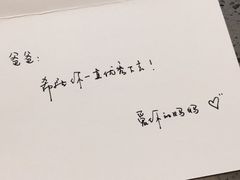 爸爸：
希望你一直优秀下去！
爱你的妈妈